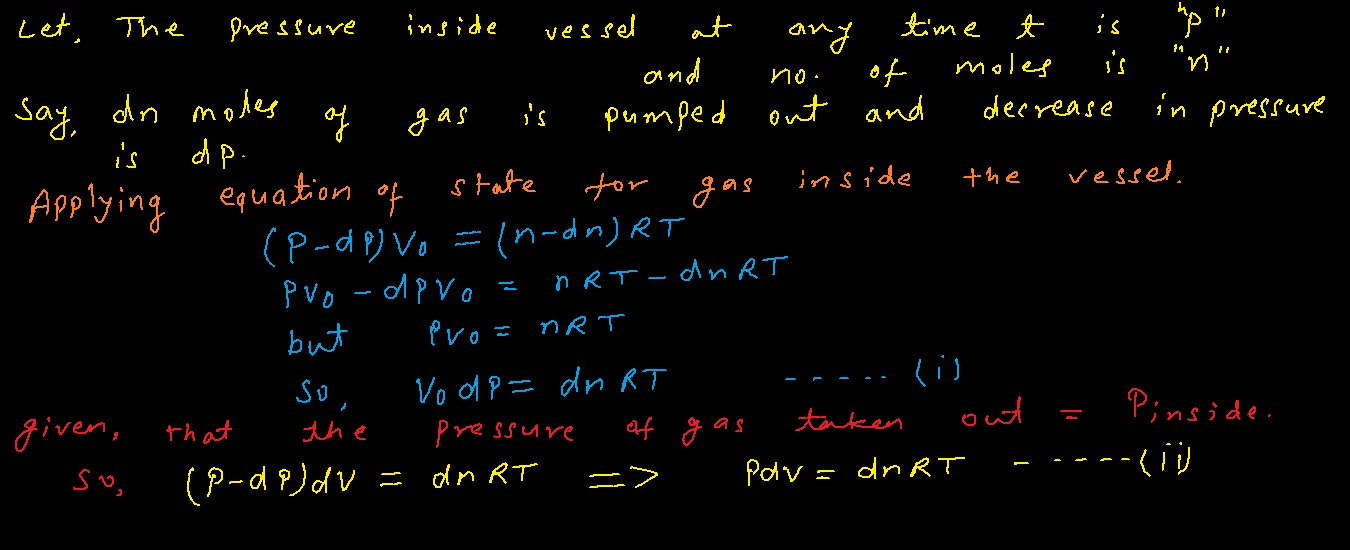 Let, The pressure inside vessel at any time t is "p"
and no. of moles is "n"
Say, dn moles of gas is pumped out and decrease in pressure
is dp.
Applying equation of state for gas inside the vessel.
(P-dP)V₀ = (n-dn)RT
PV₀ - dPV₀ = nRT - dnRT
but PV₀ = nRT
So, V₀dP = dnRT ----- (i)
given, that the pressure of gas taken out = Pinside.
So, (P-dP)dV = dnRT => Pdv = dnRT - ----(ii)